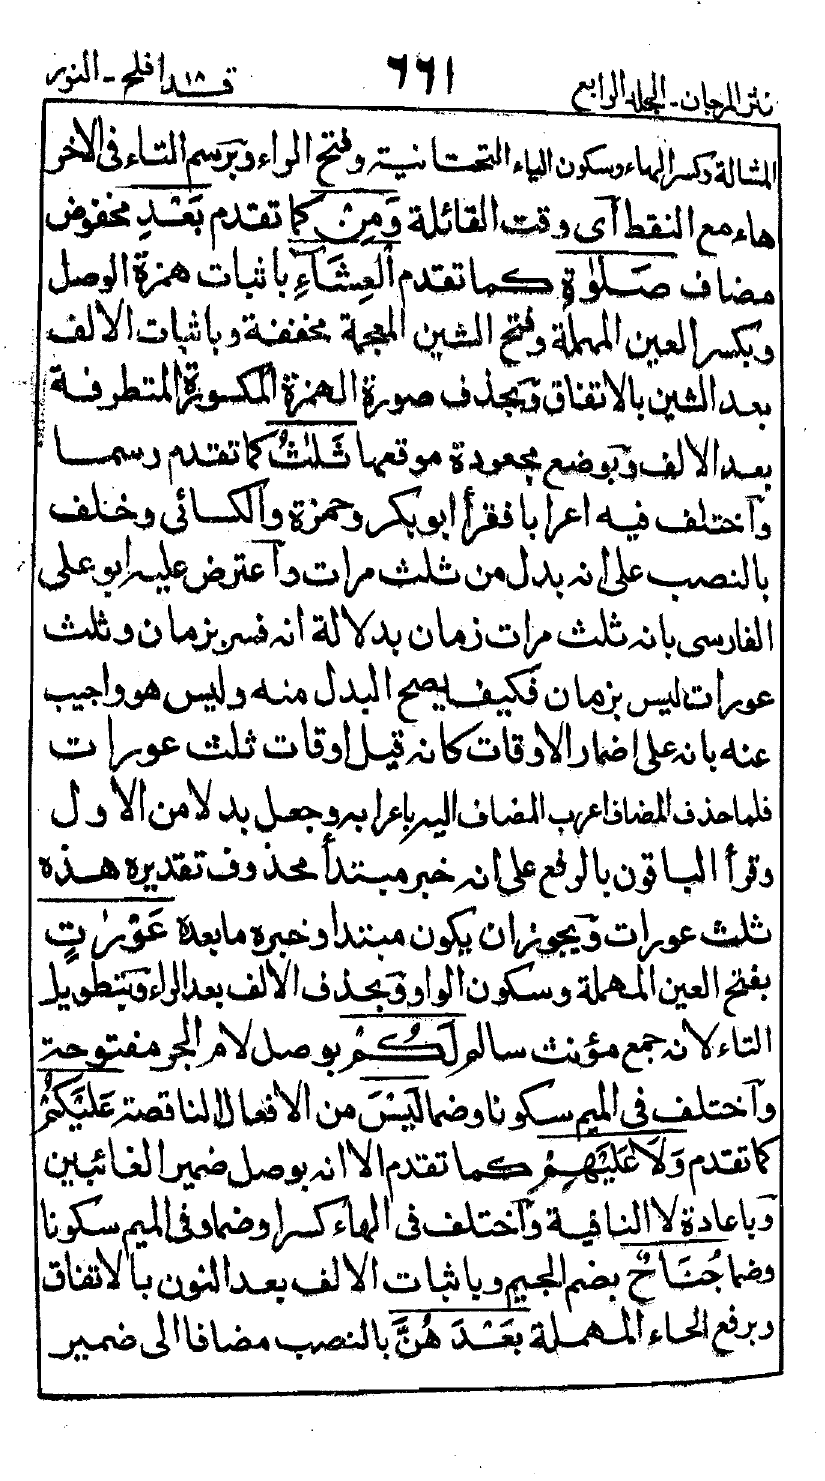 نثر المرجان - الجلد الرابع ٦٦١ قد افلح ١٨ - النور
المشالة وكسر الهاء وسكون الياء التحتانية وفتح الراء وبرسم التاء فى الآخر
هاء مع النقط اى وقت القائلة وَمِنْ كما تقدم بَعْدِ مخفوض
مضاف صَلٰوةِ كما تقدم الْعِشَاۤءِ باثبات همزة الوصل
وبكسر العين المهملة وفتح الشين المعجمة مخففة وباثبات الالف
بعد الشين بالاتفاق وبحذف صورة الهمزة المكسورة المتطرفة
بعد الالف وبوضع مجعودة موقعها ثَلٰثُ كما تقدم رسما
واختلف فيه اعرابا فقرأ ابوبكر وحمزة والكسائى وخلف
بالنصب على انه بدل من ثلث مرات واعترض عليه ابو على
الفارسى بانه ثلث مرات زمان بدلالة انه فسر بزمان وثلث
عورات ليس بزمان فكيف يصح البدل منه وليس هو واجيب
عنه بانه على اضمار الاوقات كانه قيل اوقات ثلث عورات
فلما حذف المضاف اعرب المضاف اليه باعرابه وجعل بدلا من الاول
وقرأ الباقون بالرفع على انه خبر مبتدأ محذوف تقديره هذه
ثلث عورات ويجوز ان يكون مبتدا وخبره ما بعده عَوْرٰتٍ
بفتح العين المهملة وسكون الواو وبحذف الالف بعد الراء وبتطويل
التاء لانه جمع مؤنث سالم لَكُمْ بوصل لام الجر مفتوحة
واختلف فى الميم سكونا وضما لَيْسَ من الافعال الناقصة عَلَيْكُمْ
كما تقدم وَلَا عَلَيْهِمْ كما تقدم الا انه بوصل ضمير الغائبين
وباعادة لا النافية واختلف فى الهاء كسرا وضما وفى الميم سكونا
وضما جُنَاحٌ بضم الجيم وباثبات الالف بعد النون بالاتفاق
وبرفع الحاء المهملة بَعْدَ هُنَّ بالنصب مضافا الى ضمير